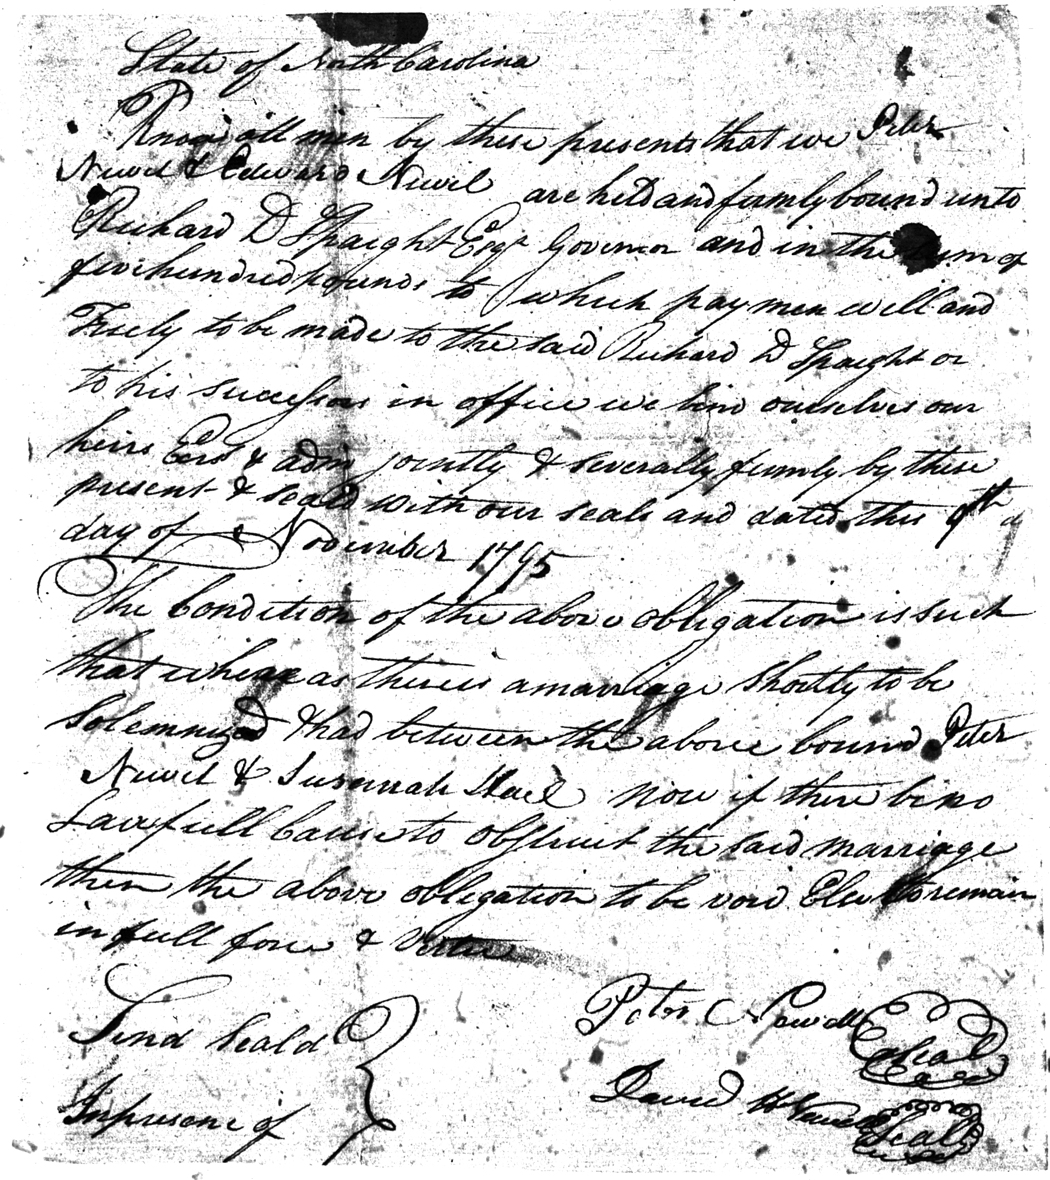 State of North Carolina
Know all men by these presents that we Peter
Newel & Edward Newel are held and firmly bound unto
Richard D Spaight Esqr Governor and in the sum of
five hundred pounds to which paymen well and
Truely to be made to the said Richard D Spaight or
to his successors in office we bind ourselves our
heirs Exrs & adm jointly & severally firmly by these
present & seald with our seals and dated this 9th d
day of November 1795
The Condition of the above obligation is such
that whereas there is a marriage Shortly to be
Solemnized & had between the above bound Peter
Newel & Susannah now if there be no
Lawfull Cause to obstruct the said marriage
then the above obligation to be void Else to remain
in full force & Virtue
Sind Seald
In presence of
Peter Newell Seal
David Seal